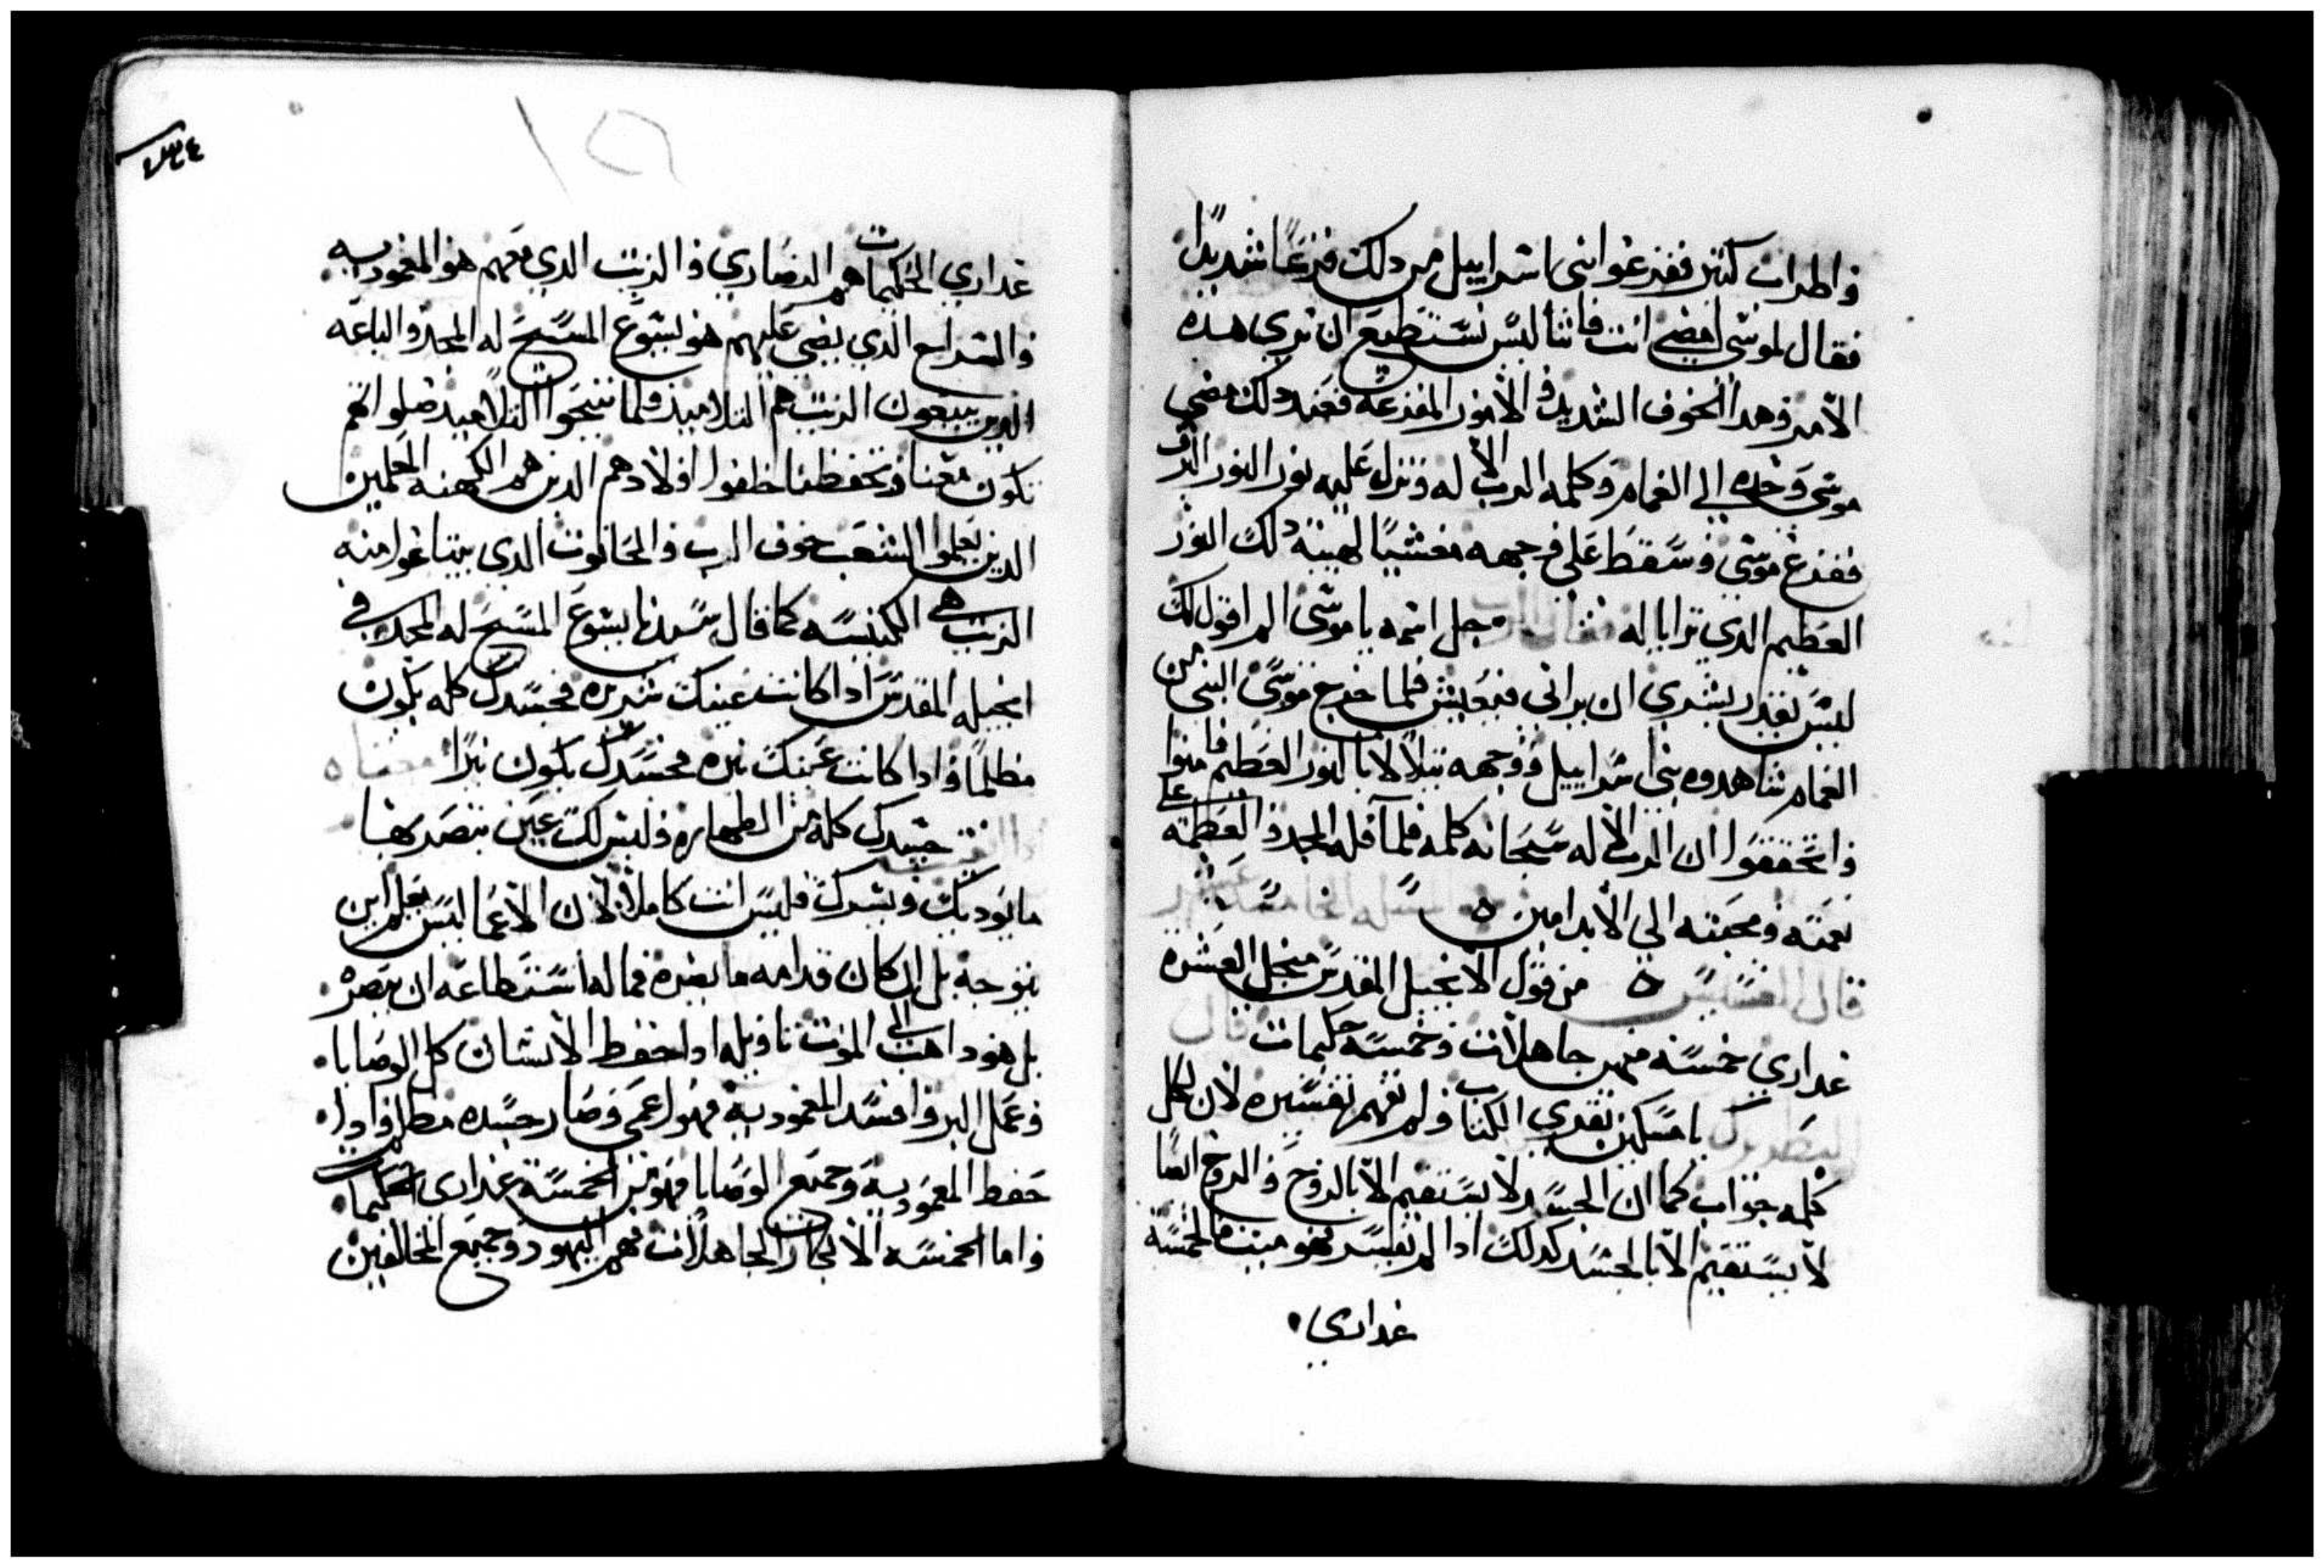 واطراب كتير ففزعوا بنى اسراييل من دلك فزعًا شديدًا
فقال لموسى امضي انت فاننا ليس نستطيع ان نري هده
الامر وهدا الخوف الشديد والامور المفزعه فعند دلك مضي
موسى وحده الي الغمام وكلمه الرب الاله ونزل عليه نور النور
ففزع موسى وسقط على وجهه مغشيًا لهيبة دلك النور
العظيم الدي ترايا له فقال الرب جل اسمه يا موسى الم اقول لك
ليس يقدر بشري ان يراني فيعيش فلما خرج موسى النبي من
الغمام شاهدوه بني اسراييل ووجهه يتلالا بالنور العظيم فامنوا
واتحققوا ان الرب الاله سبحانه كلمه فله المجد والعظمه على
نعمته ومحبته الي الابد امين
قال القسيس من قول الانجيل المقدس من اجل العشره
عداري خمسه منهن جاهلات وخمسه حكيمات قال
البطريرك يا مسكين تقري الكتاب ولم تفهم تفسيره لان لكل
كلمه جواب كما ان الجسد لا يستقيم الا بالروح والروح ايضا
لا يستقيم الا بالجسد كدلك ادا لم تفسر الخمسه
عداري
٢٣٤
١٥
عداري الحكيمات هم النصاري والزيت الدي معهم هو المعموديه
والسراج الدي يضي عليهم هو يسوع المسيح له المجد والباعه
الدين يبيعون الزيت هم التلاميد ولما تنيحوا التلاميد
تكون معنا وتحفظنا خلفوا اولادهم الدين هم الكهنه المعلمين
الدين يعلموا الشعب خوف الرب والحانوت الدي يبتاعوا منه
الزيت هي الكنيسه كما قال سيدنا يسوع المسيح له المجد في
انجيله المقدس ادا كانت عينك شريره فجسدك كله يكون
مظلمًا وادا كانت عينك نيره فجسدك يكون نيرًا معناه
جسدك كله من الطهاره وليس لك عين تبصر بها
ما يوديك ويسرك فليس انت كاملًا لان الاعما ليس يعلم اين
يتوجه بل ان كان قدامه ما يعتره فما له استطاعه ان يبصره
بل هو داهب الي الموت تاويله ادا حفظ الانسان كل الوصايا
وعمل البر وافسد المعموديه فهو اعمي وصار جسده مظلم وادا
حفظ المعموديه وجميع الوصايا فهو من الخمسة عداري الحكيمات
واما الخمسه الابكار الجاهلات فهم اليهود وجميع المخالفين